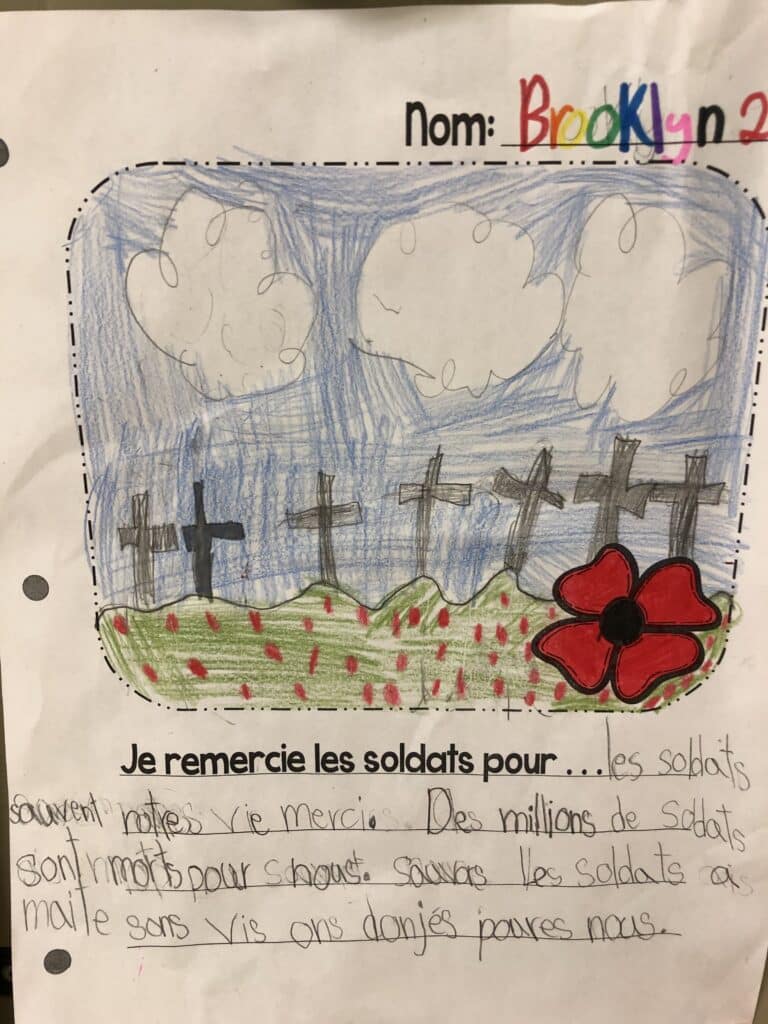 Nom: Brooklyn 2
Je remercie les soldats pour ... les soldats
sauvent notres vie merci. Des millions de soldats
sont morts pour nous. sauvas les soldats
maite sons vis ons donjés poures nous.